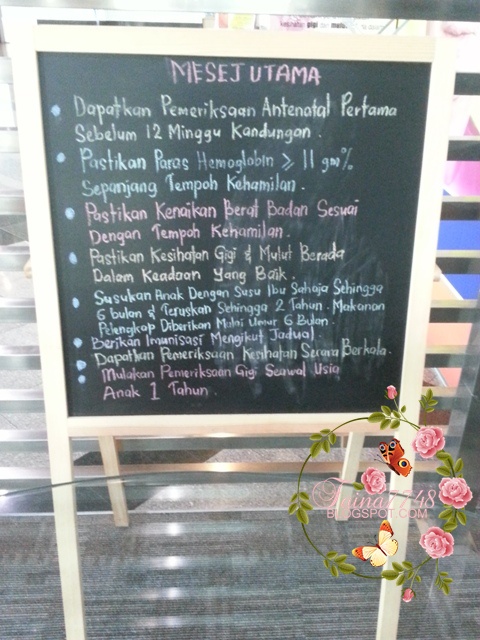 MESEJ UTAMA
Dapatkan Pemeriksaan Antenatal Pertama
Sebelum 12 Minggu Kandungan.
Pastikan Paras Hemoglobin ≥ 11 gm%
Sepanjang Tempoh Kehamilan.
Pastikan Kenaikan Berat Badan Sesuai
Dengan Tempoh Kehamilan.
Pastikan Kesihatan Gigi & Mulut Berada
Dalam Keadaan Yang Baik.
Susukan Anak Dengan Susu Ibu Sahaja Sehingga
6 bulan & Teruskan Sehingga 2 Tahun. Makanan
Pelengkap Diberikan Mulai Umur 6 Bulan.
Berikan Imunisasi Mengikut Jadual.
Dapatkan Pemeriksaan Kesihatan Secara Berkala.
Mulakan Pemeriksaan Gigi Seawal Usia
Anak 1 Tahun.
BLOGSPOT.COM